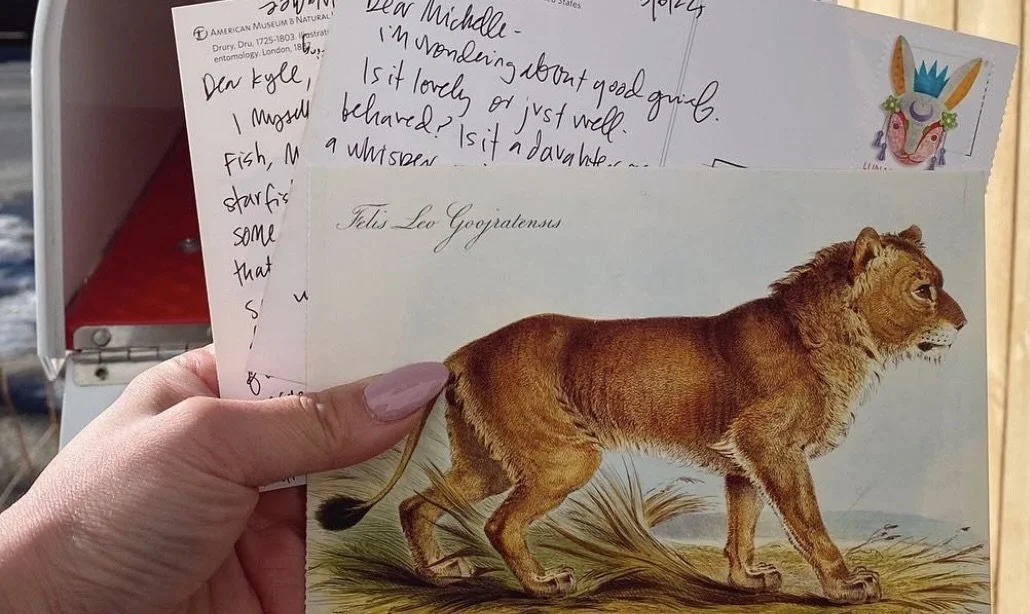 AMERICAN MUSEUM & NATURAL
Drury, Dru, 1725-1803. Illustrati
entomology. London, 18
Dear Kyle,
I myself
fish, M
starfis
some
that
s
States
Dear Michelle-
i'm wondering about good grief.
Is it lovely or just well.
behaved? Is it a daughter
a whisper
Felis Leo Goojratensis